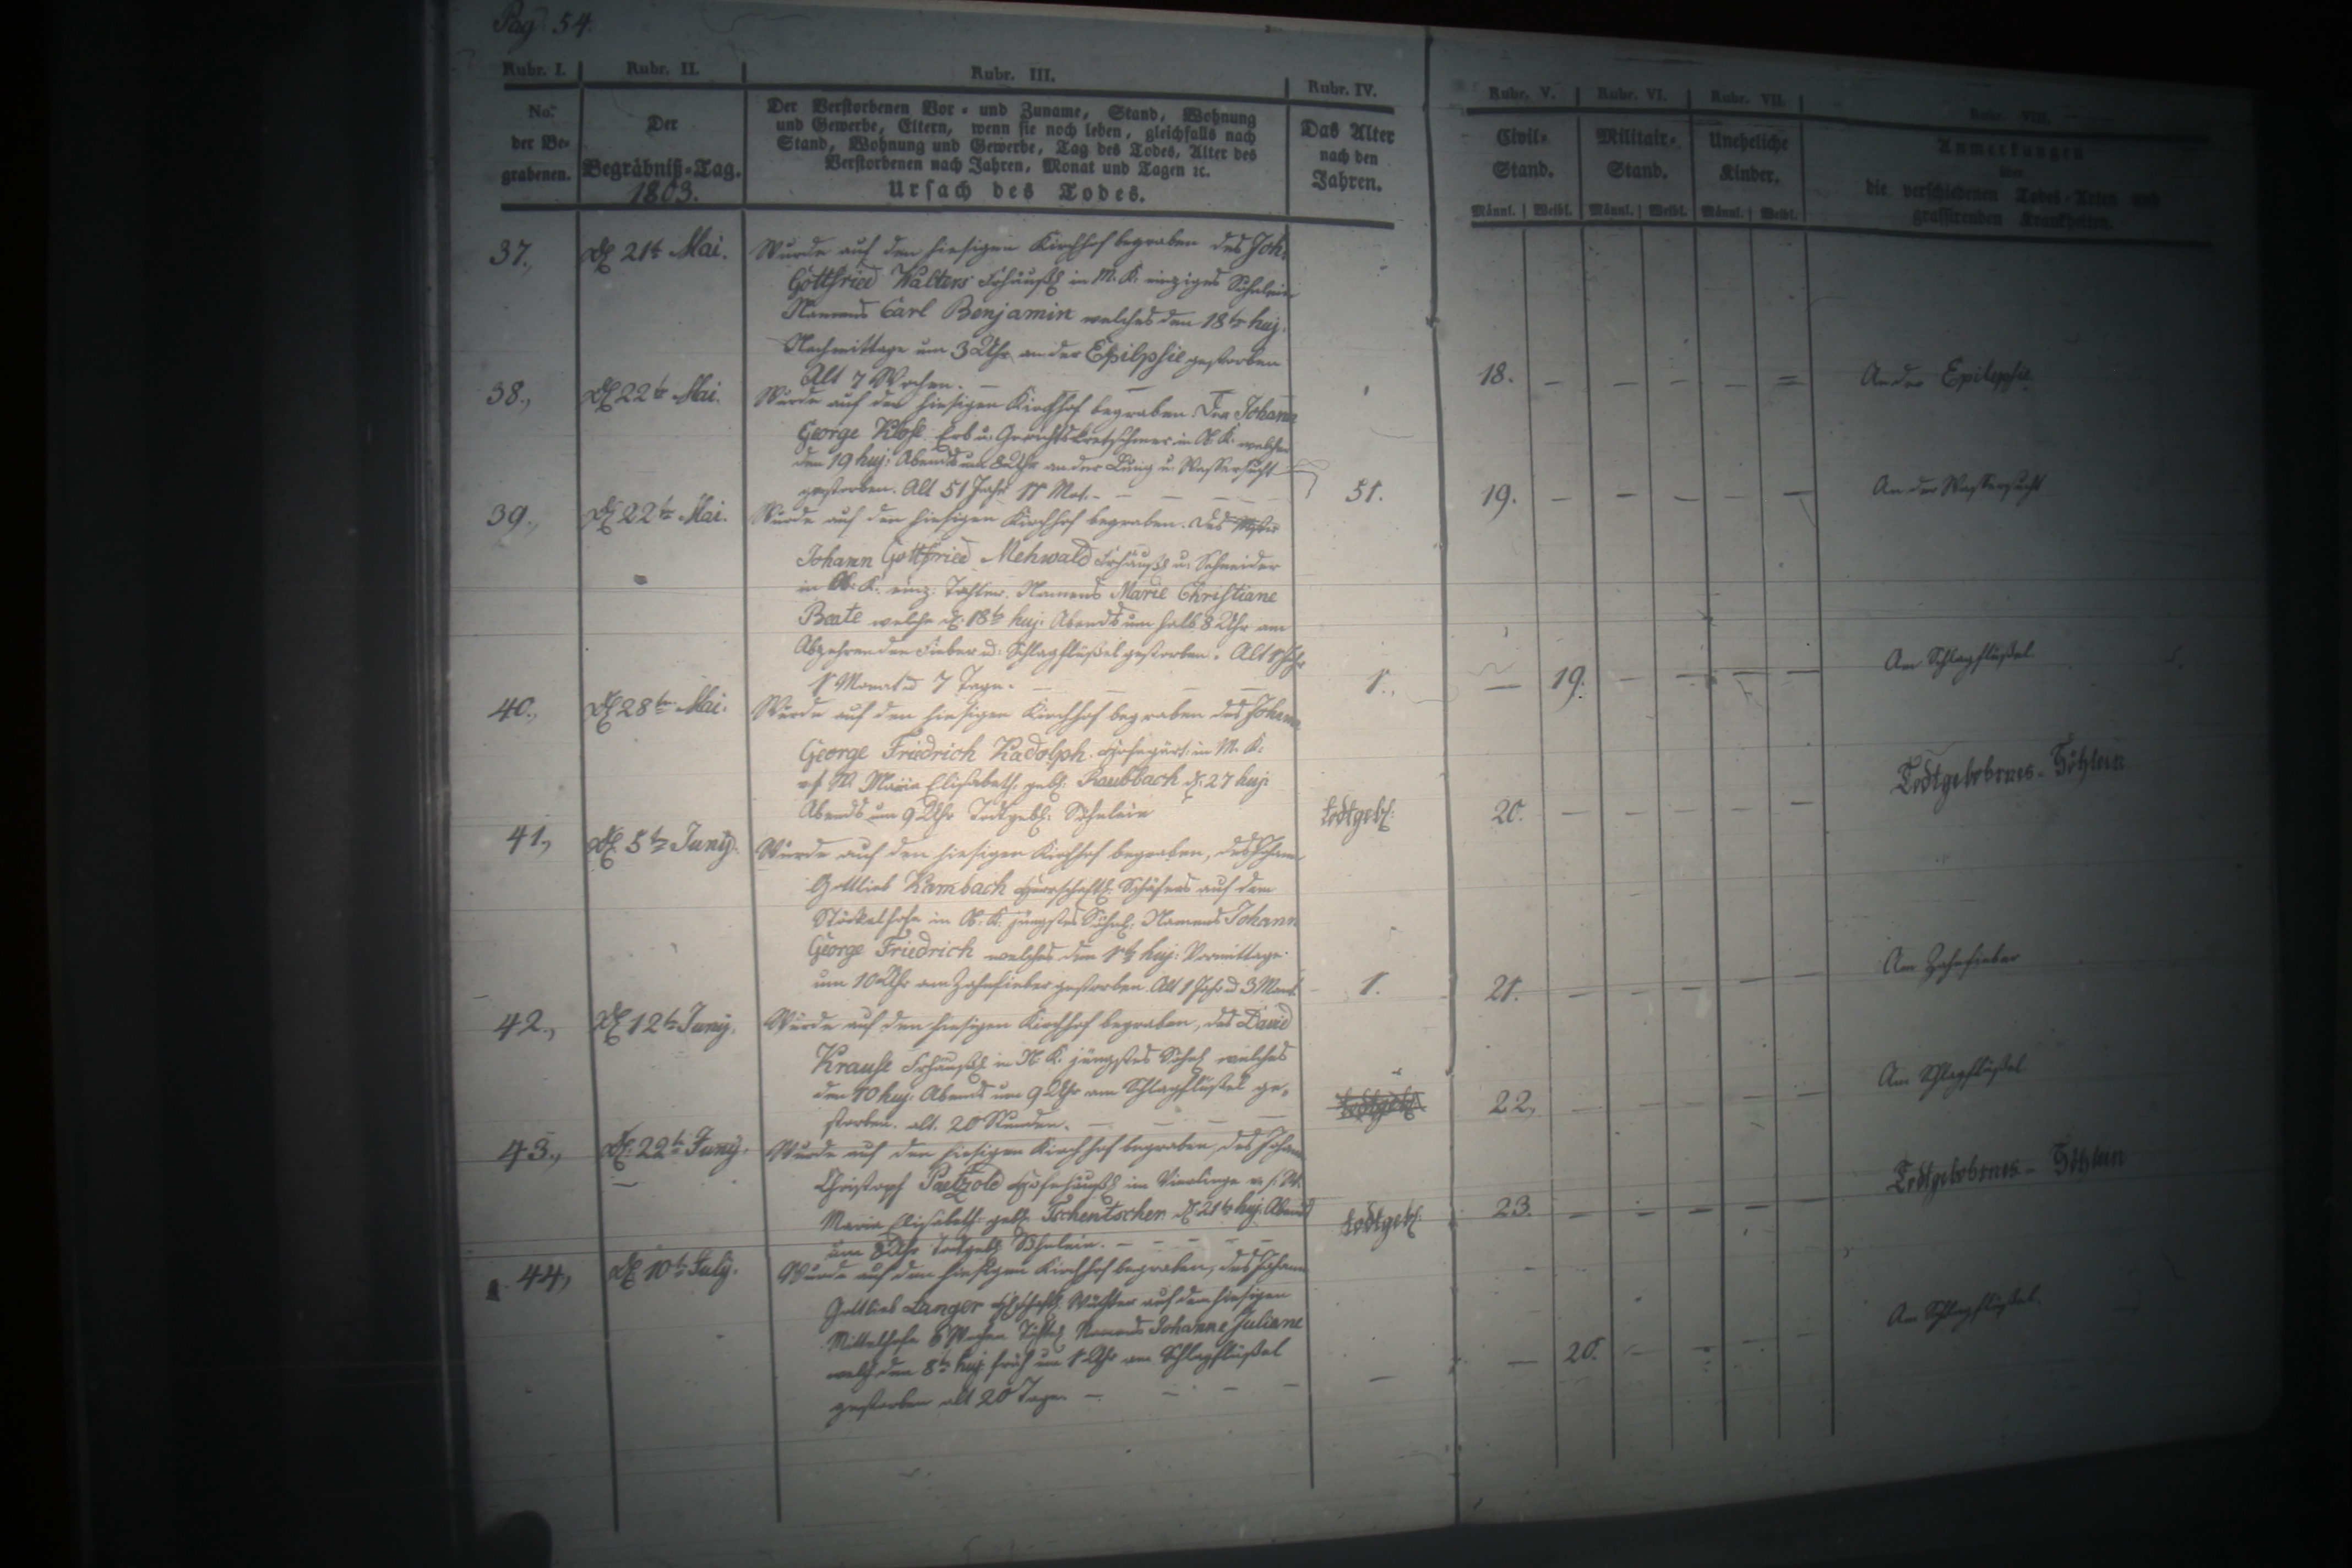 Pag. 54.
Rubr. I. Rubr. II. Rubr. III. Rubr. IV. Rubr. V. Rubr. VI. Rubr. VII. Rubr. VIII.
No. der Begrabenen.
Der Begräbniß-Tag. 1803.
Der Verstorbenen Vor- und Zuname, Stand, Wohnung
und Gewerbe, Eltern, wenn sie noch leben, gleichfalls nach
Stand, Wohnung und Gewerbe, Tag des Todes, Alter des
Verstorbenen nach Jahren, Monat und Tagen ꝛc.
Ursach des Todes.
Das Alter nach den Jahren.
Civil-Stand. Militair-Stand. Uneheliche Kinder.
Männl. Weibl. Männl. Weibl. Männl. Weibl.
Anmerkungen
über
die verschiedenen Todes-Arten und
grassirenden Krankheiten.
37., d. 21t Mai. Wurde auf den hiesigen Kirchhof begraben des Joh.
Gottfried Walters Frhäußl. in M. K. einziges Söhnlein
Namens Carl Benjamin welches den 18ten huj.
Nachmittags um 3 Uhr an der Epilpsie gestorben
Alt 7 Wochen. — 18. — — — — = An der Epilepsie
38., d. 22te Mai. Wurde auf den hiesigen Kirchhof begraben. Der Johann
George Klose Erb u. Gerichtskretschmer in Ob. K. welcher
den 19 huj: Abends um 8 Uhr an der Lung u. Wassersucht
gestorben. Alt 51 Jahr 11 Mot. — 51. 19. — — — — — An der Wassersucht
39., d. 22te Mai. Wurde auf den hiesigen Kirchhof begraben. Des
Johann Gottfried Mehwald Frhäußl. u. Schneider
in Ob. K. einz. Tochter. Namens Marie Christiane
Beate welche d. 18te huj: Abends um halb 8 Uhr am
Abzehrenden Fieber u: Schlagflüßel gestorben. Alt 1 Jahr
1 Monat u 7 Tage. — 1., — 19. — — — — Am Schlagflüßel
40., d. 28ten Mai. Wurde auf den hiesigen Kirchhof begraben des Johann
George Friedrich Kadolph. Hofegärt. in M. K.
Maria Elisabeth. geb. Raubbach d. 27 huj:
Abends um 9 Uhr Todtgeb. Söhnlein todtgeb: 20. — — — — — Todtgebohrnes-Söhlein
41., d. 5te Juny. Wurde auf den hiesigen Kirchhof begraben, des Johann
Gottlieb Kambach Herrschaftl. Schäfers auf dem
Stöckelhofe in Ob. K. jüngstes Söhnl. Namens Johann
George Friedrich welches den 1te huj: Vormittags
um 10 Uhr am Zahnfieber gestorben. Alt 1 Jahr u 3 Monat 1. 21. — — — — — Am Zahnfieber
42., d. 12te Juny. Wurde auf den hiesigen Kirchhof begraben, des David
Krause Frhäußl. in N. K. jüngstes Söhnl. welches
den 10 huj. Abends um 9 Uhr am Schlagflüßel ge-
storben. alt. 20 Stunden. — todtgeb. 22. — — — — — Am Schlagflüßel
43., d. 22te Juny. Wurde auf den hiesigen Kirchhof begraben, des Johann
Christoph Paetzold Hofehäußl. im
Maria Elisabeth geb. Tschentscher d. 21te huj. Abends
um 8 Uhr todtgeb. Söhnlein. — todtgeb. 23. — — — — — Todtgebohrnes-Söhlein
44, d. 10te July. Wurde auf den hiesigen Kirchhof begraben, des Johann
Gottlieb Langer Wächter auf dem hiesigen
Mittelhofe Namens Johanne Juliane
welche den 8te huj. früh um 1 Uhr am Schlagflüßel
gestorben alt 20 Tage. — — — 20. — — — — Am Schlagflüßel